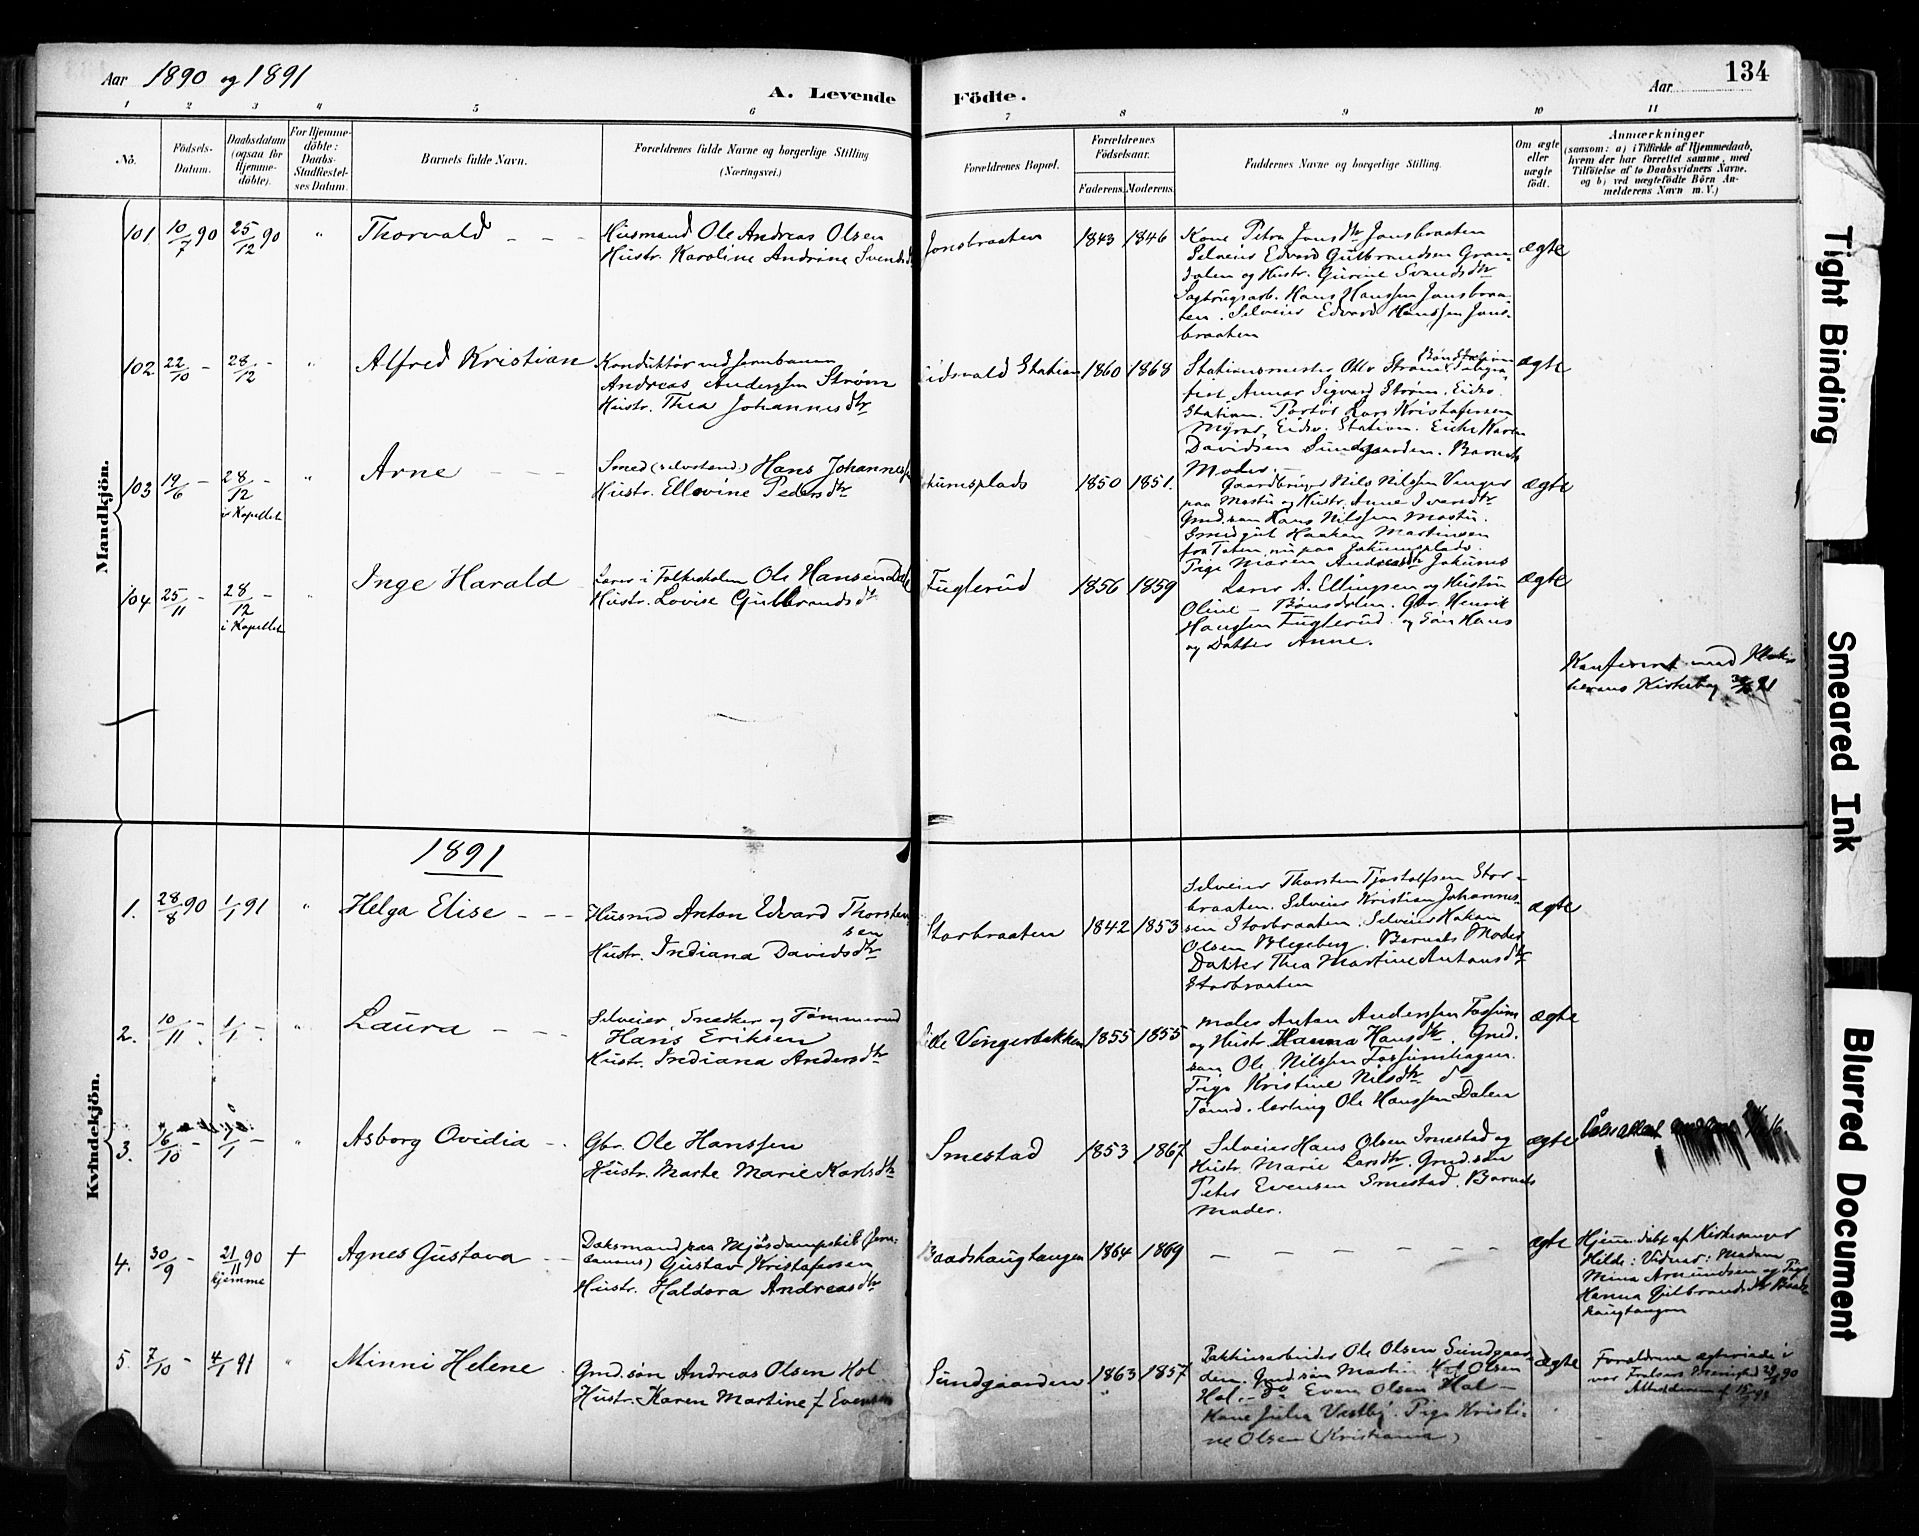 Aar 1890 og 1891
A. Levende
Födte.
Aar
134
1 2 3 4 5 6 7 8 9 10 11
No.
Födsels-
Datum.
Daabsdatum
(ogsaa for
Hjemme-
döbte).
For Hjemme-
döbte:
Daabs-
Stadfæstel-
ses Datum.
Barnets fulde Navn.
Forældrenes fulde Navne og borgerlige Stilling
(Næringsvei.)
Forældrenes Bopæl.
Forældrenes
Födselsaar.
Faderens.
Moderens.
Faddernes Navne og borgerlige Stilling.
Om ægte
eller
uægte
født.
Anmærkninger
(saasom: a) i Tilfælde af Hjemmedaab,
hvem der har forrettet samme, med
Tilföielse af to Daabsvidners Navne,
og b) ved uægtefödte Börn An-
melderens Navn m. V.)
Mandkjön.
101 10/7 90 25/12 90 " Thorvald
Husmand Ole Andreas Olsen
Hustr. Karoline Andrine Svendsdtr
Jonsbraaten 1843 1846
Kone Petra Jonsdtr Jonsbraaten
Selveier Edvard Gulbrandsen Gran-
dalen og Hustr. Gurine Svendsdtr
Sagbrugsarb. Hans Hanssen Jonsbraa-
ten. Selveier Edvard Hanssen Jons-
braaten
ægte
102 22/10 - 28/12 - " Alfred Kristian
Konduktør ved Jernbanen
Andreas Anderssen Strøm
Hustr. Thea Johannesdtr
Eidsvold Station 1860 1868
Stationsmester Otto Strøm
Station. Portør Lars Kristofersen
Myrer, Eidsv. Station. Enke Karen
Davidsen Sundgaarden. Barnets
Moder.
ægte
103 19/6 - 28/12 - i Kapellet " Arne
Smed (selvstænd.) Hans Johannessen
Hustr. Ellevine Pedersdtr
Jokumsplads 1850 1851.
Gaardbruger Nils Nilssen Vinger
paa Mostu og Hustr. Anne Iversdtr
Gmd. søn Hans Nilssen Mostu.
Smedgut Haakon Martinsen
fra Toten, nu paa Jokumsplads.
Pige Maren Andreasdtr Jokums
ægte
104 25/11 - 28/12 - i Kapellet " Inge Harald
Lærer i Folkeskolen Ole Hansen Dahl
Hustr. Lovise Gulbrandsdtr
Fuglerud 1856 1859
Lærer A. Ellingsen og Hustru
Oline - Bønsdalen. Gbr. Henrik
Hanssen Fuglerud og Søn Hans
og Datter Anne.
ægte
Konfereret med Klok-
kerens Kirkebog 91
Kvindekjön.
1891
1. 28/8 90 1/1 91 " Helga Elise
Husmd Anton Edvard Thorsten-
sen
Hustr. Indiana Davidsdtr
Storbraaten 1842 1853
Selveier Thorsten Tjostolfsen Stor-
braaten. Selveier Kristian Johannes-
sen Storbraaten. Selveier Hakon
Olsen Blegeberg. Barnets Moder
Datter Thea Martine Antonsdtr
Storbraaten
ægte
2. 10/11 - 1/1 - " Laura
Selveier, Snedker og Tømmermd
Hans Eriksen
Hustr. Indiana Andersdtr
Lille Vingerbakken 1855 1855
Maler Anton Anderssen Fossum
og Hustr. Hanna Hansdtr. Gmd.
søn Ole Nilssen Fossumhagen.
Pige Kristine Nilsdtr do
Tømd. lærling Ole Hanssen Dalen
ægte
3. 16/10 - 1/1 - " Asborg Ovidia
Gbr. Ole Hanssen
Hustr. Marte Marie Karlsdtr
Smestad 1853 1867
Selveier Hans Olsen Smestad og
Hustr. Marie Larsdtr. Gmd. søn
Peter Evensen Smestad. Barnets
Moder.
ægte
4. 30/9 - 21/11 90 hjemme + Agnes Gustava
Dæksmand paa Mjøsdampskib (Jern-
barden) Gustav Kristofersen
Hustr. Haldora Andreasdtr
Baadshaugtangen 1864 1869
ægte
Hjemmedøbt af Kirkesanger
Hilde: Vidner: Madam
Mina Amundsen og Pige
Hanna Gulbrandsdtr Baads-
haugtangen
5. 7/10 - 4/1 91 " Minni Helene
Gmd. søn Andreas Olsen Hol
Hustr. Karen Martine f. Evensen
Sundgaarden 1863 1857
Pakhusarbeider Ole Olsen Sundgaar-
den. Gmd søn Martin Olsen
Hol. - do Even Olsen Hol -
Kone Julia Vestby. Pige Kristi-
ne Olsen (Kristiania)
ægte
Forældrene ægteviede i
90
Tight Binding
Smeared Ink
Blurred Document